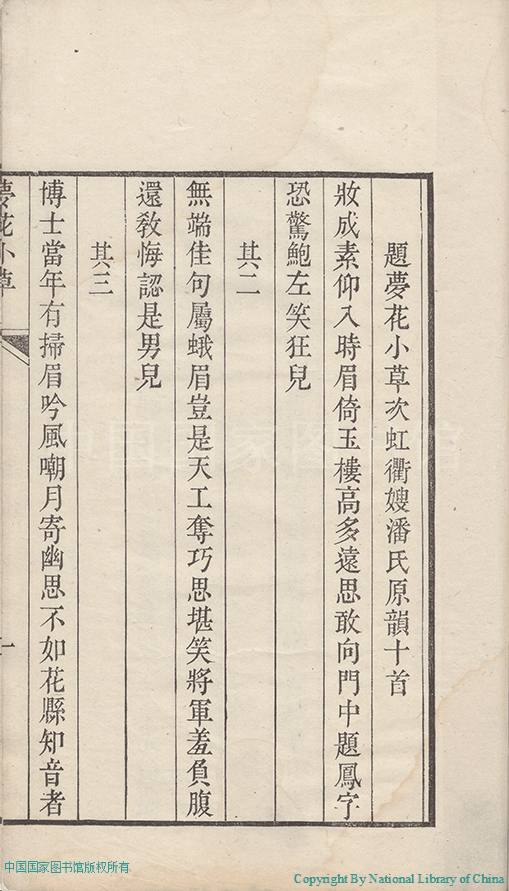 題夢花小草次虹衢嫂潘氏原韻十首
妝成素仰入時眉倚玉樓高多遠思敢向門中題鳳字
恐驚鮑左笑狂兒
其二
無端佳句屬蛾眉豈是天工奪巧思堪笑將軍羞負腹
還教悔認是男兒
其三
博士當年有掃眉吟風嘲月寄幽思不如花縣知音者
夢花小草
一
中国国家图书馆
中国国家图书馆版权所有
Copyright By National Library of China